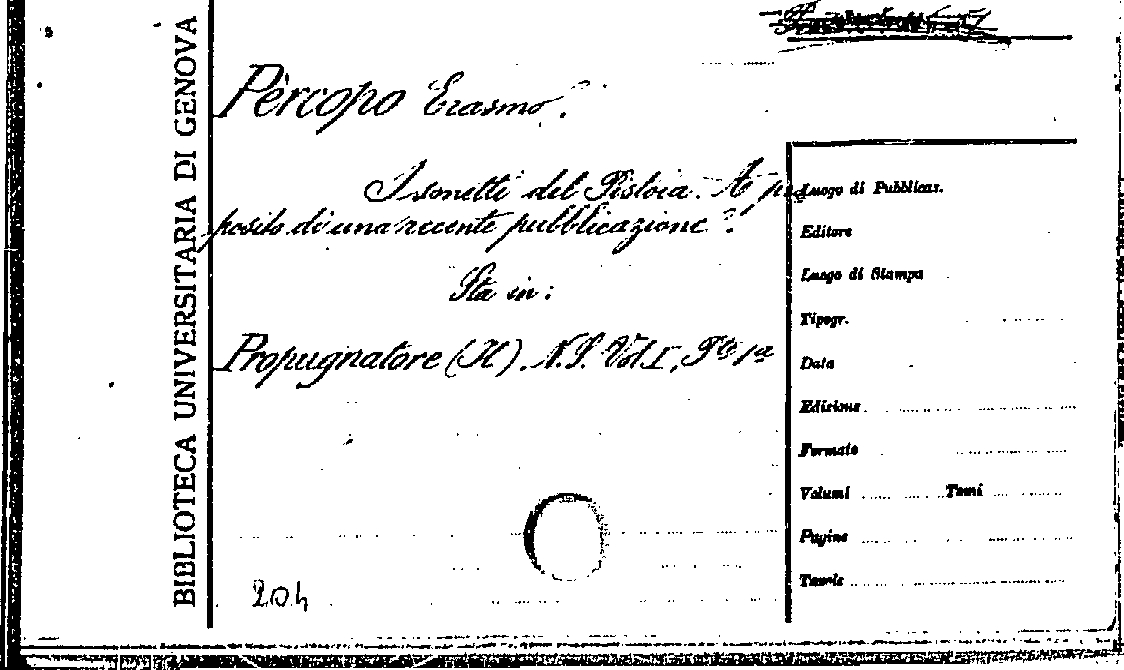 BIBLIOTECA UNIVERSITARIA DI GENOVA
Pèrcopo Erasmo.
I sonetti del Pistoia. A pro
posito di una recente pubblicazione.
Sta in:
Propugnatore (Il). N.S. Vol. I, Pte 1a
204
Luogo di Pubblicaz.
Editore
Luogo di Stampa
Tipogr.
Data
Edizione
Formato
Volumi Tomi
Pagine
Tavole